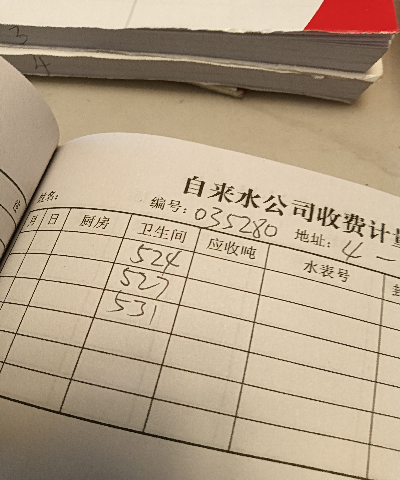 3
4
自来水公司收费计量
姓名: 编号: 035280 地址: 4 —
月 日 厨房 卫生间 应收吨 水表号
524
527
531